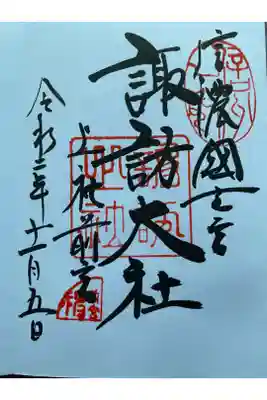 信濃國一之宮
諏訪大社
上社前宮
令和二年十一月五日